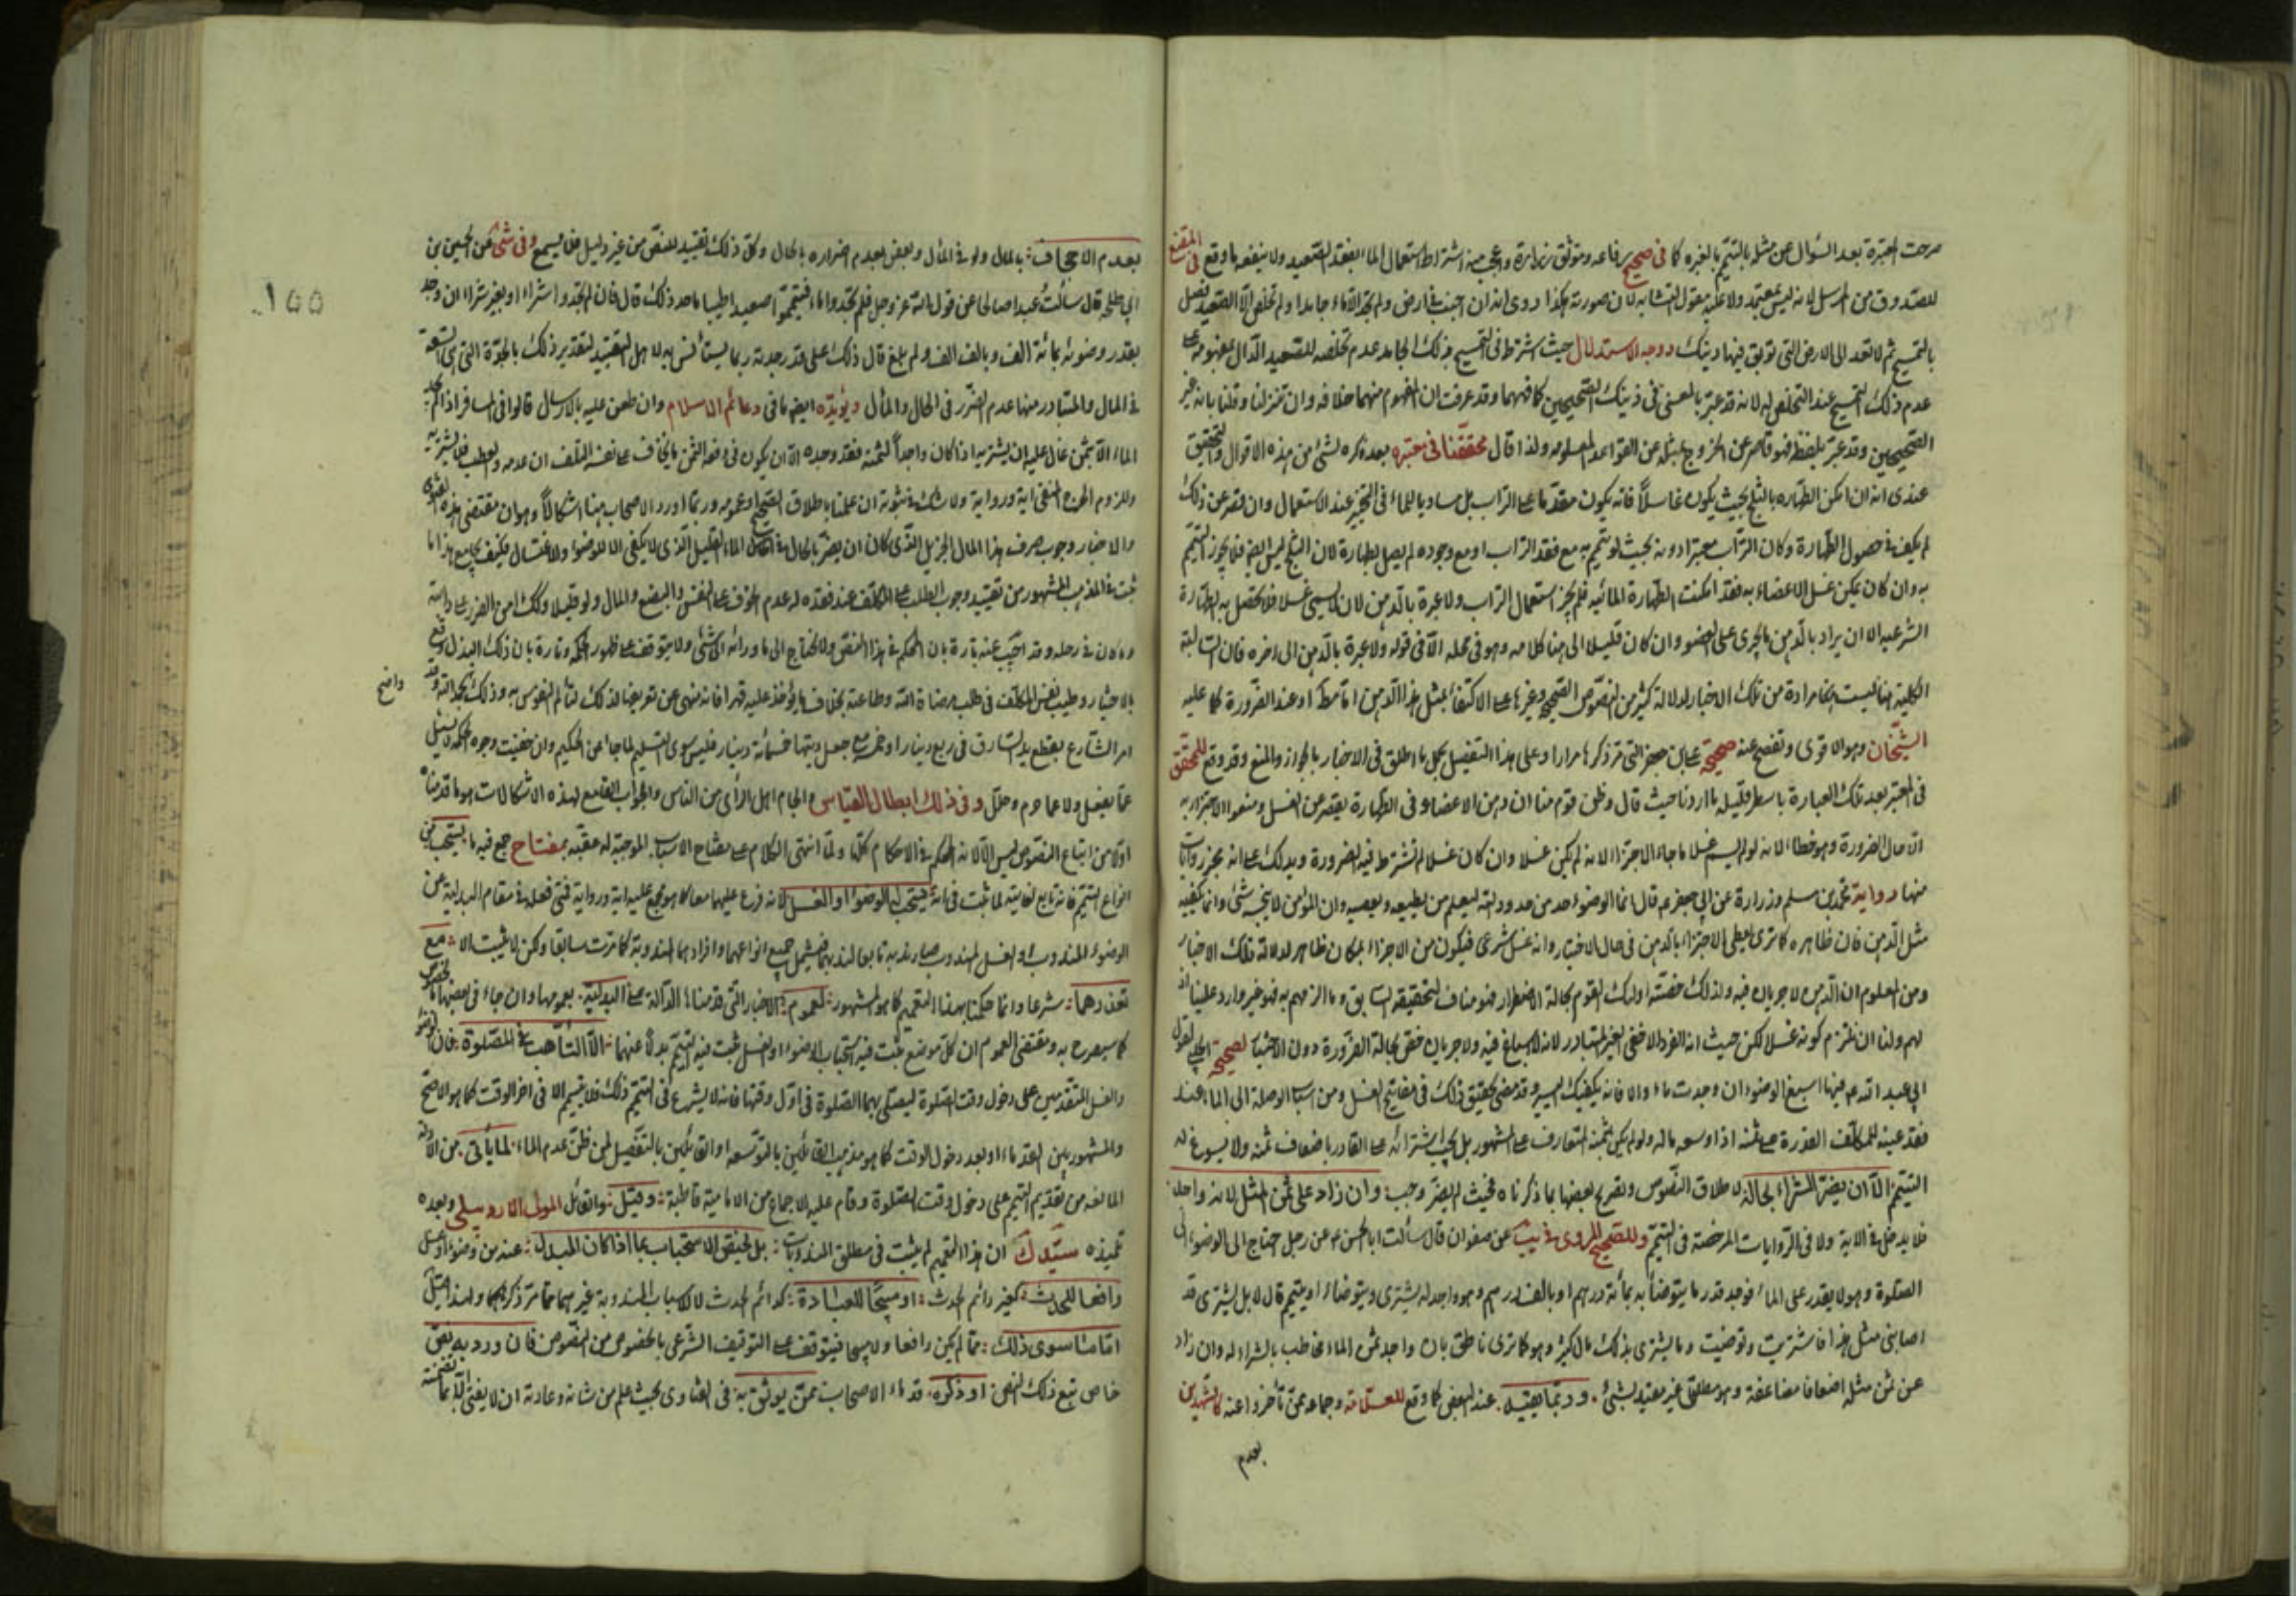 صرحت المعتبرة بعد السؤال عن مثله بالتيمم بالغبرة كما في صحيح رفاعه وموثق زرارة واعجب منه اشتراط استعمال الماء بفقد الصعيد ولا ينفعه ما وقع في المقنع
للصدوق من المرسل لانه ليس بمعتمد ولا عليه معول لتشابه لان صورته هكذا روى انه ان اجنبت في ارض ولم تجد الا ماء جامدا ولم تخلص الى الصعيد فصل
بالتمسح ثم لا تعد الى الارض التي توبق فيها دينك ووجه الاستدلال حيث اشترط في التمسح بذلك الجامد عدم تخلصه للصعيد الدال بمفهومه على
عدم ذلك التمسح عند التخلص اليه لانه قد عبر بالمعنى في ذينك الصحيحين كما فهمها وقد عرفت ان المفهوم منهما خلافه وان تنزلنا وقلنا بانه غير
الصحيحين وقد عبر بلفظه فهو قاصر عن الخروج بمثله عن القواعد المعلومه ولذا قال محققنا في معتبره بعد ذكره لشئ من هذه الاقوال والتحقيق
عندي انه ان امكن الطهاره بالثلج بحيث يكون غاسلا فانه يكون مقدما على التراب بل مساويا للماء في التخيير عند الاستعمال وان قصر عن ذلك
لم يكف في حصول الطهارة وكان التراب معتبرا دونه بحيث لو تيمم به مع فقد التراب او مع وجوده لم يصل بطهارة لان الثلج ليس ارضا فلا يجوز التيمم
به وان كان يمكن غسل الاعضاء به فقد امكنت الطهارة المائيه فلم يجز استعمال التراب ولا عبرة بالدهن لانه لا يسمى غسلا فلا تحصل به الطهارة
الشرعيه الا ان يراد بالدهن ما يجري على العضو وان كان قليلا الى هنا كلامه وهو في محله الا في قوله ولا عبرة بالدهن الى اخره فان السالبة
الكلية هنا ليست بمرادة من تلك الاخبار لدلالة كثير من النصوص الصحيح وغيرها على الاكتفاء بمثل هذا الدهن اما مطلقا او عند الضرورة كما عليه
الشيخان وهو الاقوى وتفصح عنه صحيحة علي بن جعفر التي مر ذكرها مرارا وعلى هذا التفصيل يحمل ما اطلق في الاخبار بالجواز والمنع وقد وقع للمحقق
في المعتبر بعد تلك العبارة باسطر قليلة ما اردنا حيث قال وظن قوم منا ان دهن الاعضاء في الطهارة يقصر عن الغسل ومنعوا الاجتزاء به
الا حال الضرورة وهو خطاء لانه لو لم يسم غسلا لما جاء الاجتزاء لانه لم يكن غسلا وان كان غسلا لم تشترط فيه الضرورة ويدلك على انه مجز روايات
منها رواية محمد بن مسلم وزرارة عن ابي جعفر ع قال انما الوضوء حد من حدود الله ليعلم من يطيعه ومن يعصيه وان المؤمن لا ينجسه شئ وانما يكفيه
مثل الدهن فان ظاهره كما ترى يعطي الاجتزاء بالدهن في حال الاختيار وانه غسل شرعي فيكون من الاجزاء بمكان ظاهر لدلالة تلك الاخبار
ومن المعلوم ان الدهن لا جريان فيه ولذلك خصته اولئك القوم بحالة الاضطرار فهو مناف لتحقيقه السابق وما الزمهم به فهو غير وارد علينا اذ
لهم ولنا ان نلتزم كونه غسلا لكن حيث انه الفرد الاخفى الغير المتبادر لانه لا اسباغ فيه ولا جريان خص بحالة الضرورة دون الاختيار لصحيحة الحلبي لقول
ابي عبد الله ع فيها اسبغ الوضوء ان وجدت ماء والا فانه يكفيك اليسير وقد مضى تحقيق ذلك في مفاتيح الغسل ومن اسباب الوصلة الى الماء عند
فقد عينه للمكلف القدرة على ثمنه اذا وسعه ماله ولو لم يكن بثمنه المتعارف على المشهور بل يجب اشترائه على القادر باضعاف ثمنه ولا يسوغ له
التيمم الا ان يضر الشراء بحاله لاطلاق النصوص وتصريح بعضها بما ذكرناه فحيث لم يضر وجب وان زاد على ثمن المثل لانه واجد
فلا يدخل في الاية ولا في الروايات المرخصة في التيمم وللصحيح المروي في يب عن صفوان قال سألت ابا الحسن ع عن رجل احتاج الى الوضوء الى
الصلوة وهو لا يقدر على الماء فوجد قدر ما يتوضأ به بمائة درهم او بالف درهم وهو واجد له يشتري ويتوضاء او يتيمم قال لا بل يشتري قد
اصابني مثل هذا فاشتريت وتوضيت وما يشترى بذلك مال كثير وهو كما ترى ناطق بان واجد ثمن الماء مخاطب بالشراء له وان زاد
عن ثمن مثله اضعافا مضاعفة وهو مطلق غير مقيد بشئ وربما يقيد عند البعض كما وقع للعلامة وجماعة ممن تأخروا عنه كالشهيدين
بعدم
155
بعدم الاجحاف بالمال ولو في المال وبعض بعدم اضراره بالحال وكل ذلك تقييد للنص من غير دليل فلا يسمع وفي شئ عن الحسين بن
ابي طلحة قال سألت عبدا صالحا عن قول الله عز وجل فلم تجدوا ماء فتيمموا صعيدا طيبا ما حد ذلك قال فان لم تجدوا بشراء او بغير شراء ان وجد
بقدر وضوئه بمائة الف وبالف الف ولم بلغ قال ذلك على قدر جدته ربما يستأنس به لاهل التقييد لتقدير ذلك بالجدة التي هي السعة
في المال والمتبادر منها عدم الضرر في الحال والمال ويؤيده ايضا ما في دعائم الاسلام وان طعن عليه بالارسال قالوا في المسافر اذا لم يجد
الماء الا بثمن غال عليه ان يشتريه اذا كان واجدا لثمنه فقد وجده الا ان يكون في دفعه الثمن ما يخاف على نفسه التلف ان عدمه والعطب فلا يشتريه
وللزوم الحرج المنفي اية ورواية ولا شك في ثبوته ان عملنا باطلاق الصحيح وعمومه وربما اورد الاصحاب هنا اشكالا وهو ان مقتضى هذه الفتوى
والاخبار وجوب صرف هذا المال الجزيل الذي كان ان يضر بالحال في مقابل الماء القليل الذي لا يكفي الا للوضوء والاغتسال فكيف يجامع هذا ما
ثبت في المذهب المشهور من تقييد وجوب الطلب على المكلف عند فقده له عدم الخوف على النفس والبضع والمال ولو قليلا وكذلك امن الضرر على دابته
وما كان في رحله وقد اجيب عنه تارة بان الحكم في هذا النص ولا نحتاج الى ما ورائه الى شئ ولا يتوقف على ظهور الحكمة وتارة بان ذلك البذل وقع
بالاختيار وطيب نفس المكلف في طلب مرضاة الله وطاعته بخلاف ما يؤخذ عليه قهرا فانه منهي عن تعريضا لذلك لتألم النفوس به وذلك بحمد الله وقد
واضح
امر الشارع بقطع يد السارق في ربع دينار او خمس مع جعل ديتها خمسمائة دينار فليس سوى التسليم لما جاء عن الحكيم وان خفيت وجوه الحكمة لا يسئل
عما يفعل ولا عما حرم وحلل وفي ذلك ابطال القياس والجام اهل الرأي من الناس والجواب القامع لهذه الاشكالات هو ما قدمناه
اولا من اتباع النصوص ليس الا لانه الحكم في الاحكام كلها ولما انتهى الكلام على مفتاح الاسباب الموجبة له عقبه بمفتاح جمع فيه ما يستحب من
انواع التيمم فانه تابع لغايته لما ثبت في انه يستحب له الوضوء او الغسل لانه فرع عليهما معا كما هو مجمع عليه اية ورواية فمتى فعله في مقام البدلية عن
الوضوء المندوب والغسل المندوب صار ندبه تابعا لندبهما فيشمل جميع انواعهما وافرادهما المندوبة كما مرت سابقا ولكن لا يثبت الا مع
تعذرهما شرعا وانما حكمنا بهذا التعميم كما هو المشهور لعموم الاخبار التي قدمناها الدالة على البدلية بعمومها وان جاء في بعضها الخصوص
كما سيصرح به ومقتضى العموم ان كل موضع ثبت فيه استحباب الوضوء او الغسل ثبت فيه التيمم بدلا عنهما الا التأهب في الصلوة فان الوضوء
والغسل المتقدمين على دخول وقت الصلوة ليصلي بهما الصلوة في اول وقتها فانه لا يشرع في التيمم ذلك فلا يتيمم الا في اخر الوقت كما هو الاصح
والمشهور بين القدماء او بعد دخول الوقت كما هو مذهب القائلين بالتوسعه او القائلين بالتفصيل لمن ظن عدم الماء لما يأتي من الادلة
المانعه من تقديم التيمم على دخول وقت الصلوة وقام عليه الاجماع من الامامية قاطبة وقيل والقائل المولى الاردبيلي وبعده
تلميذه سيد ك ان هذا التعميم لم يثبت في مطلق المندوبات بل يختص الاستحباب بما اذا كان المبدل عنه من وضوء او غسل
رافعا للحدث كغير دائم الحدث او مبيحا للعبادة كدائم الحدث لا الاسباب المندوبة غيرهما مما مر ذكرهما ولهذا قيل
اما ما سوى ذلك مما لم يكن رافعا ولا مبيحا فيتوقف على التوقيف الشرعي بالخصوص من النصوص فان ورد به نص
خاص تبع ذلك النص او ذكره قدماء الاصحاب ممن يوثق به في الفتاوى بحيث علم من شانه وعادته ان لا يفتي الا بما تضمنته